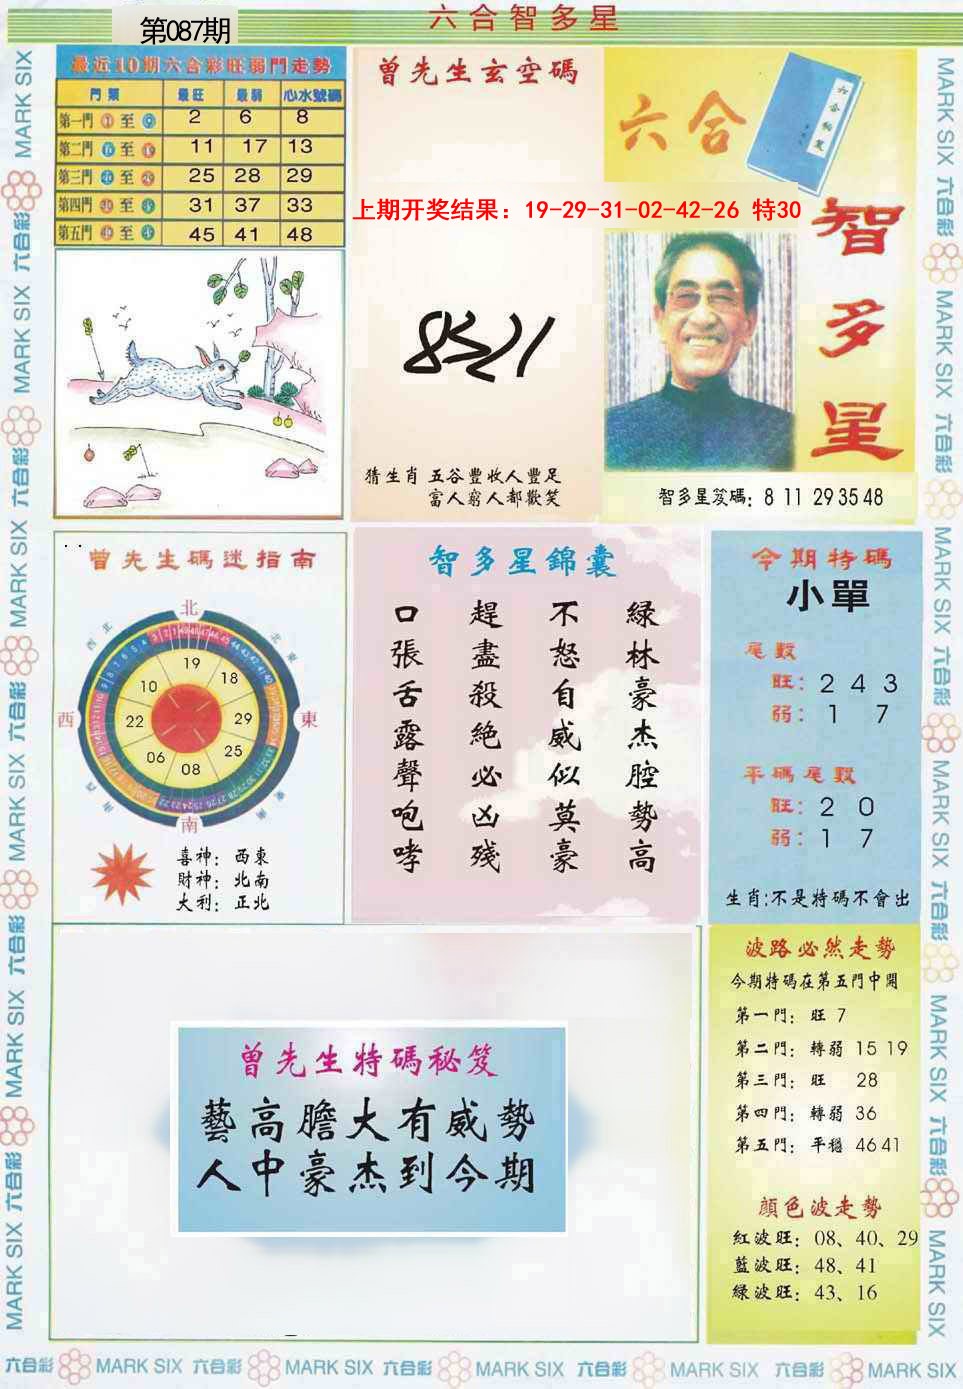 六合智多星
第087期
最近10期六合彩旺弱門走勢
門類 最旺 最弱 心水號碼
第一門 1 至 9 2 6 8
第二門 至 11 17 13
第三門 至 25 28 29
第四門 至 31 37 33
第五門 至 45 41 48
曾先生玄空碼
六合
智多星
上期开奖结果：19-29-31-02-42-26 特30
猜生肖 五谷豐收人豐足
富人窮人都歡笑
智多星笈碼：8 11 29 35 48
曾先生碼迷指南
北
西北
北東
西
東
南
19
18
29
25
08
06
22
10
喜神：西東
財神：北南
大利：正北
智多星錦囊
綠林豪杰腔勢高
不怒自威似莫豪
趕盡殺絕必凶殘
口張舌露聲咆哮
今期特碼
小單
尾數
旺：2 4 3
弱：1 7
平碼尾數
旺：2 0
弱：1 7
生肖:不是特碼不會出
曾先生特碼秘笈
藝高膽大有威勢
人中豪杰到今期
波路必然走勢
今期特碼在第五門中開
第一門：旺 7
第二門：轉弱 15 19
第三門：旺 28
第四門：轉弱 36
第五門：平穩 46 41
顏色波走勢
紅波旺：08、40、29
藍波旺：48、41
綠波旺：43、16
六合彩 MARK SIX 六合彩 MARK SIX 六合彩 MARK SIX 六合彩 MARK SIX 六合彩 MARK SIX